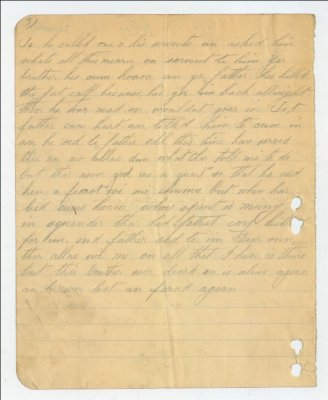 3)
So he called one o his servents an asked him
whats all this mean, an servent to him yer
bruther his cum hoam an yer father his killed
the fat calf because his got him back allraight
this he wor mad an wouldnt goa in So, t
father cum haat an telled him to cum in
an he sed to father all this time hav served
thee an av allas dun what tha told me to do
but tha niver gev me a guest so that he cud
have a feast wi me chums but when hes
lad cums hoam whos spent is muny
in a tha hes fattest corf killed
for him, and father sed to im Theer mun,
thar allus wi me an all that I have is thine
but this bruther wer dead an is alive agean
an he wer lost an fun agean